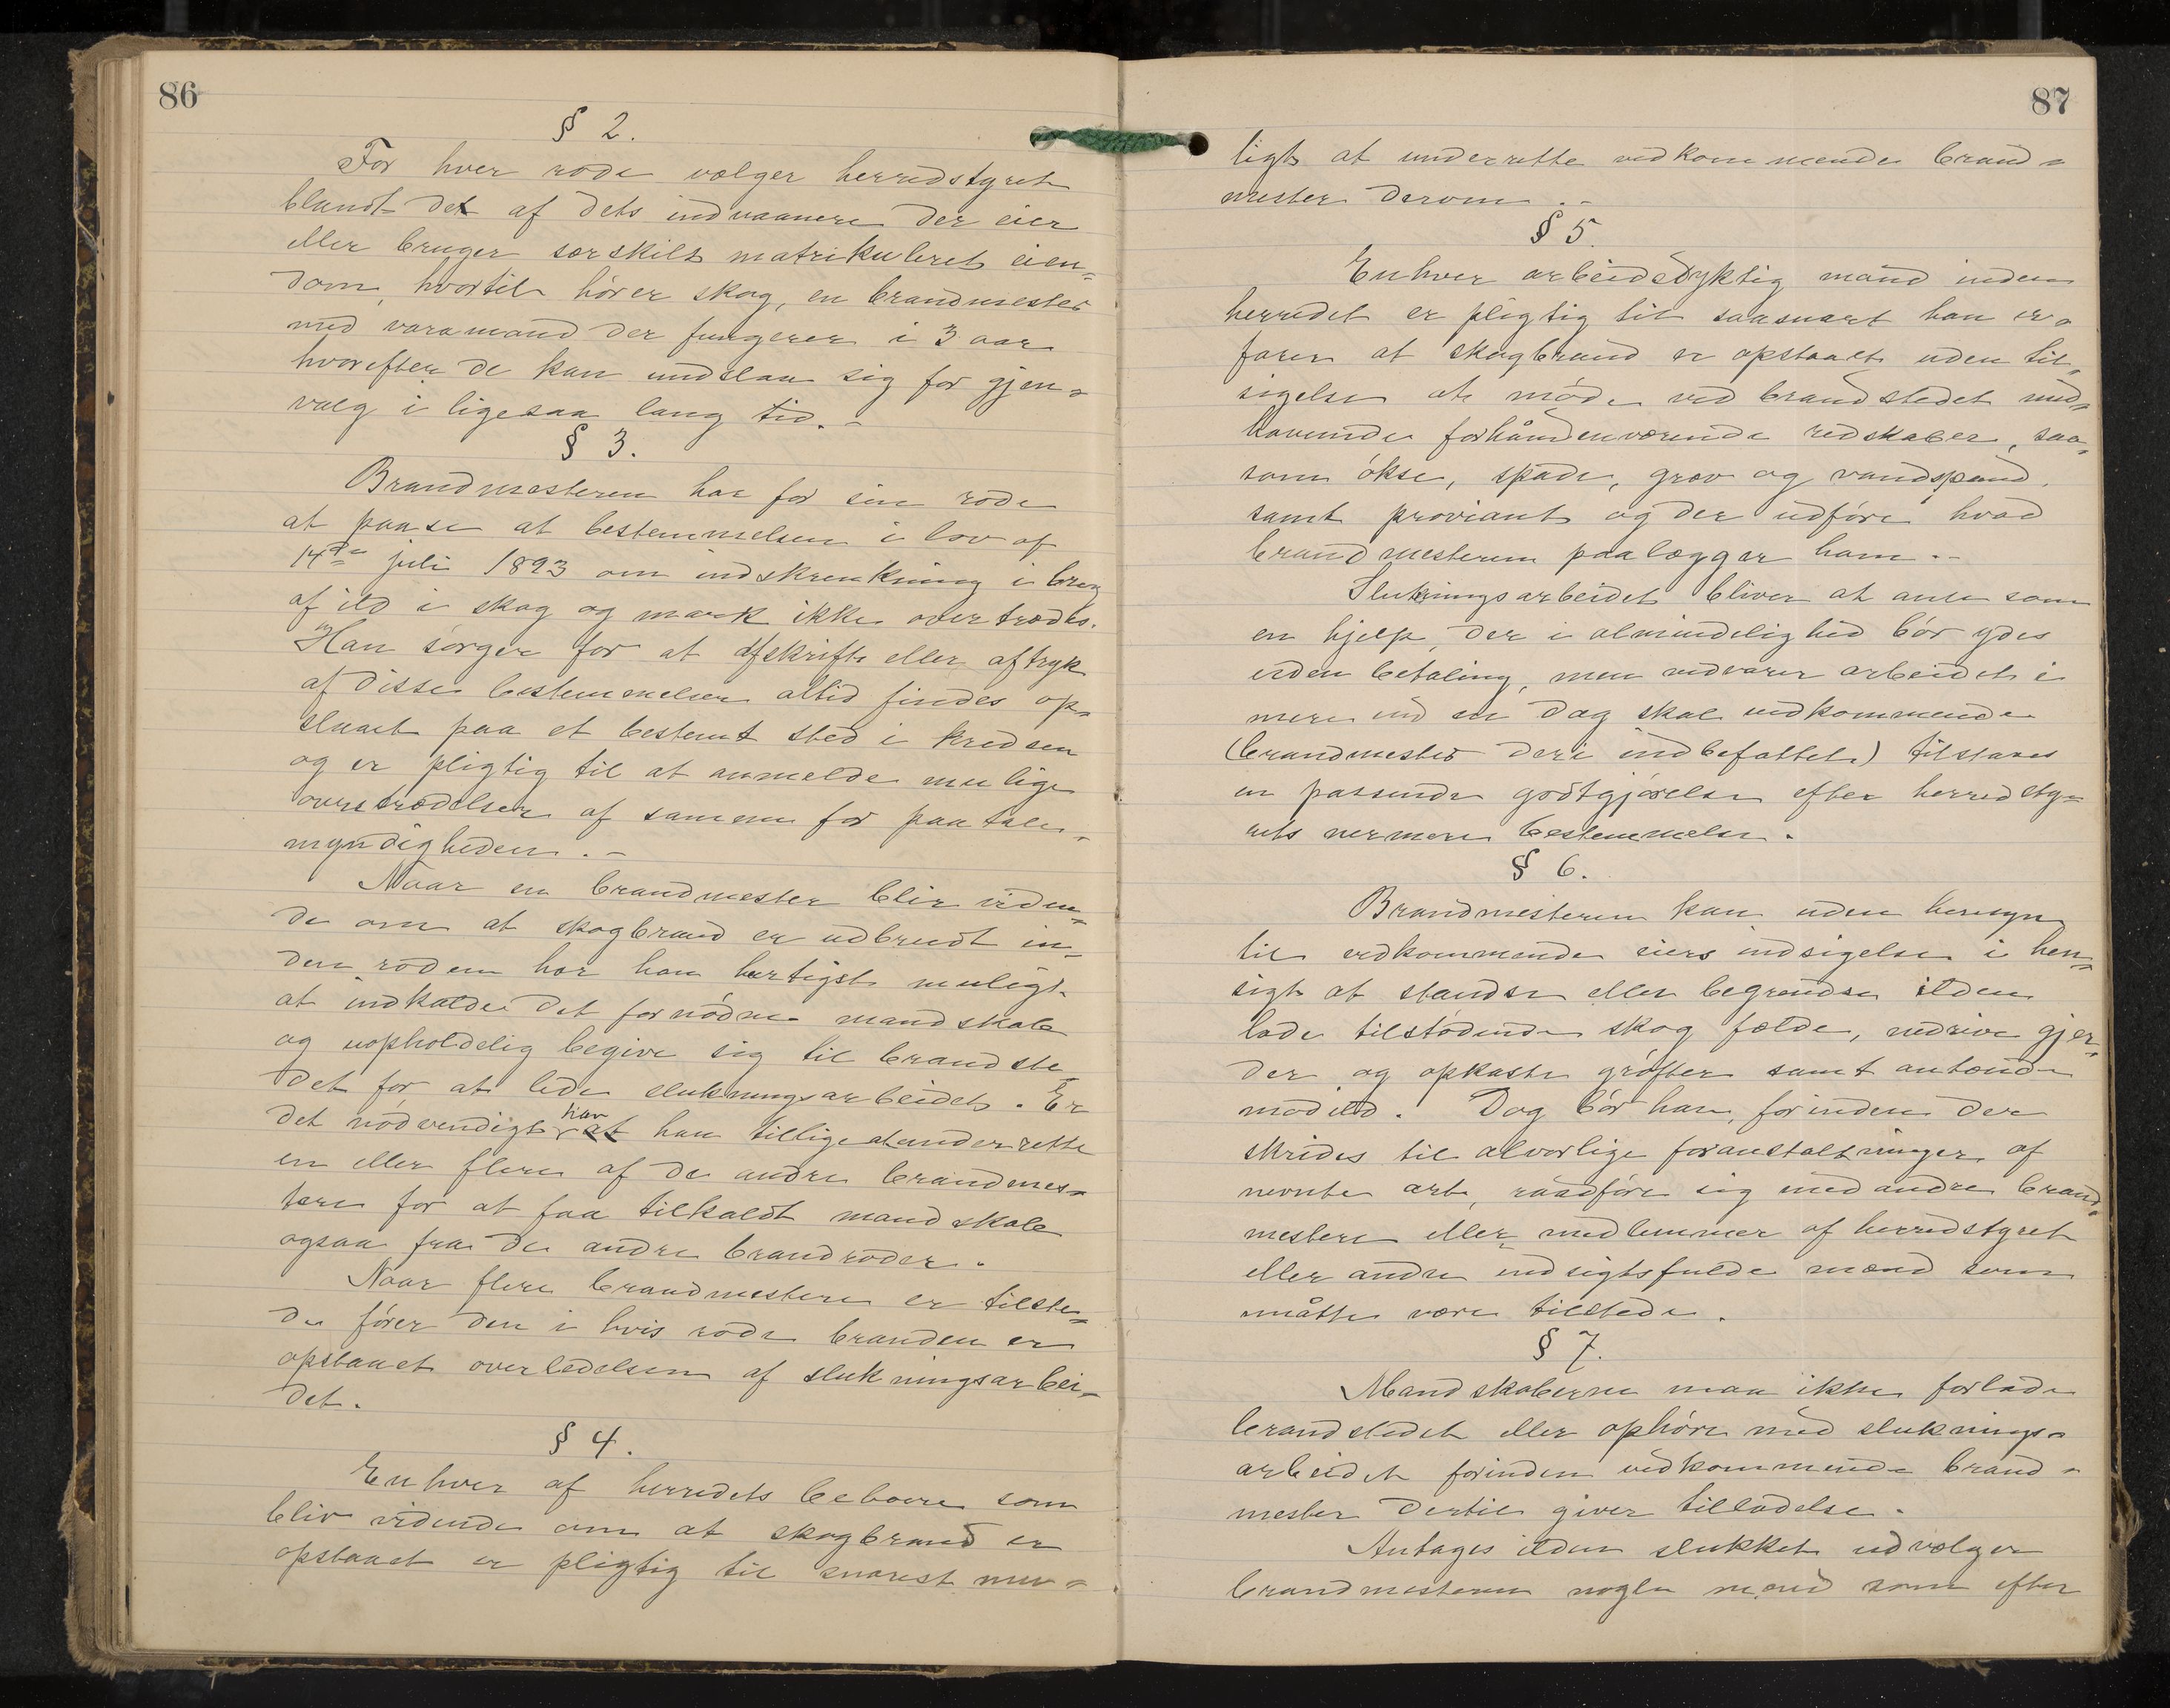 86
§ 2.
For hver rode vælger herredstyret
blandt det af dets indvaanere der eier
eller bruger særskilt matrikuleret eien=
dom, hvortil hörer skog, en brandmester
med varamand der fungerer i 3 aar
hvorefter de kan undslaa sig for gjen=
valg i ligesaa lang tid. –
§ 3.
Brandmesteren har for sin rode
at paase at bestemmelsen i lov af
14de juli 1893 om indskrenkning i brug
af ild i skog og mark ikke overtrædes.
Han sörger for at afskrift eller aftryk
af disse bestemmelser altid findes op=
slaaet paa et bestemt sted i kredsen
og er pligtig til at anmelde mulige
overtrædelser af samme for paatale=
myndigheden. –
Naar en brandmester blir viden=
de om at skogbrand er udbrudt in=
den roden har han hurtigst muligt
at indkalde det fornödne mandskab
og uopholdelig begive sig til brandste=
det for at lede slukningsarbeidet. Er
det nödvendigt har at han tillige at underrette
en eller flere af de andre brandmes=
tere for at faa tilkaldt mandskab
ogsaa fra de andre brandroder.
Naar flere brandmestere er tilste=
de förer den i hvis rode branden er
opstaaet overledelsen af slukningsarbei=
det.
§ 4.
Enhver af herredets beboere som
bliv vidende om at skogbrand er
opstaaet er pligtig til snarest mu=
87
ligt at underrette vedkommende brand=
mester derom. –
§ 5.
Enhver arbeidsdyktig mand inden
herredet er pligtig til saasnart han er=
farer at skogbrand er opstaaet uden til=
sigelse at möde ved brandstedet med=
havende forhåndenværende redskaber, saa=
som ökse, spade, grev og vandspand,
samt proviant og der udföre hvad
brandmesteren paalægger ham. –
Slukningsarbeidet bliver at anse som
en hjelp, der i almindelighed bör ydes
uden betaling, men vedvarer arbeidet i
mere end en dag skal vedkommende
(brandmester deri indbefattet) tilstaaes
en passende godtgjörelse efter herredsty=
rets nermere bestemmelse.
§ 6.
Brandmesteren kan uden hensyn
til vedkommende eiers indsigelse i hen=
sigt at standse eller begrændse ilden
lade tilstödende skog fælde, nedrive gjer=
der og opkaste gröfter samt antænde
modild. Dog bör han, forinden der
skrides til alvorlige foranstaltninger af
nevnte art, raadföre sig med andre brand=
mestere eller medlemmer af herredstyret
eller andre indsigtsfulde mænd som
måtte være tilstede.
§ 7.
Mandskaberne maa ikke forlade
brandstedet eller ophöre med sluknings=
arbeidet forinden vedkommende brand=
mester dertil giver tilladelse.
Antages ilden slukket udvælger
brandmesteren nogle mænd som efter